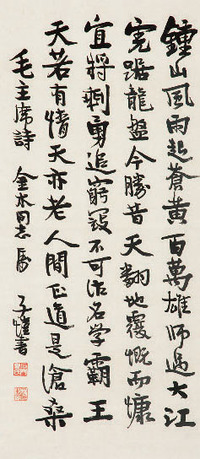 鍾山風雨起蒼黃百萬雄師過大江
虎踞龍盤今勝昔天翻地覆慨而慷
宜將剩勇追窮寇不可沽名學霸王
天若有情天亦老人間正道是滄桑
毛主席詩 金水同志屬 子愷書